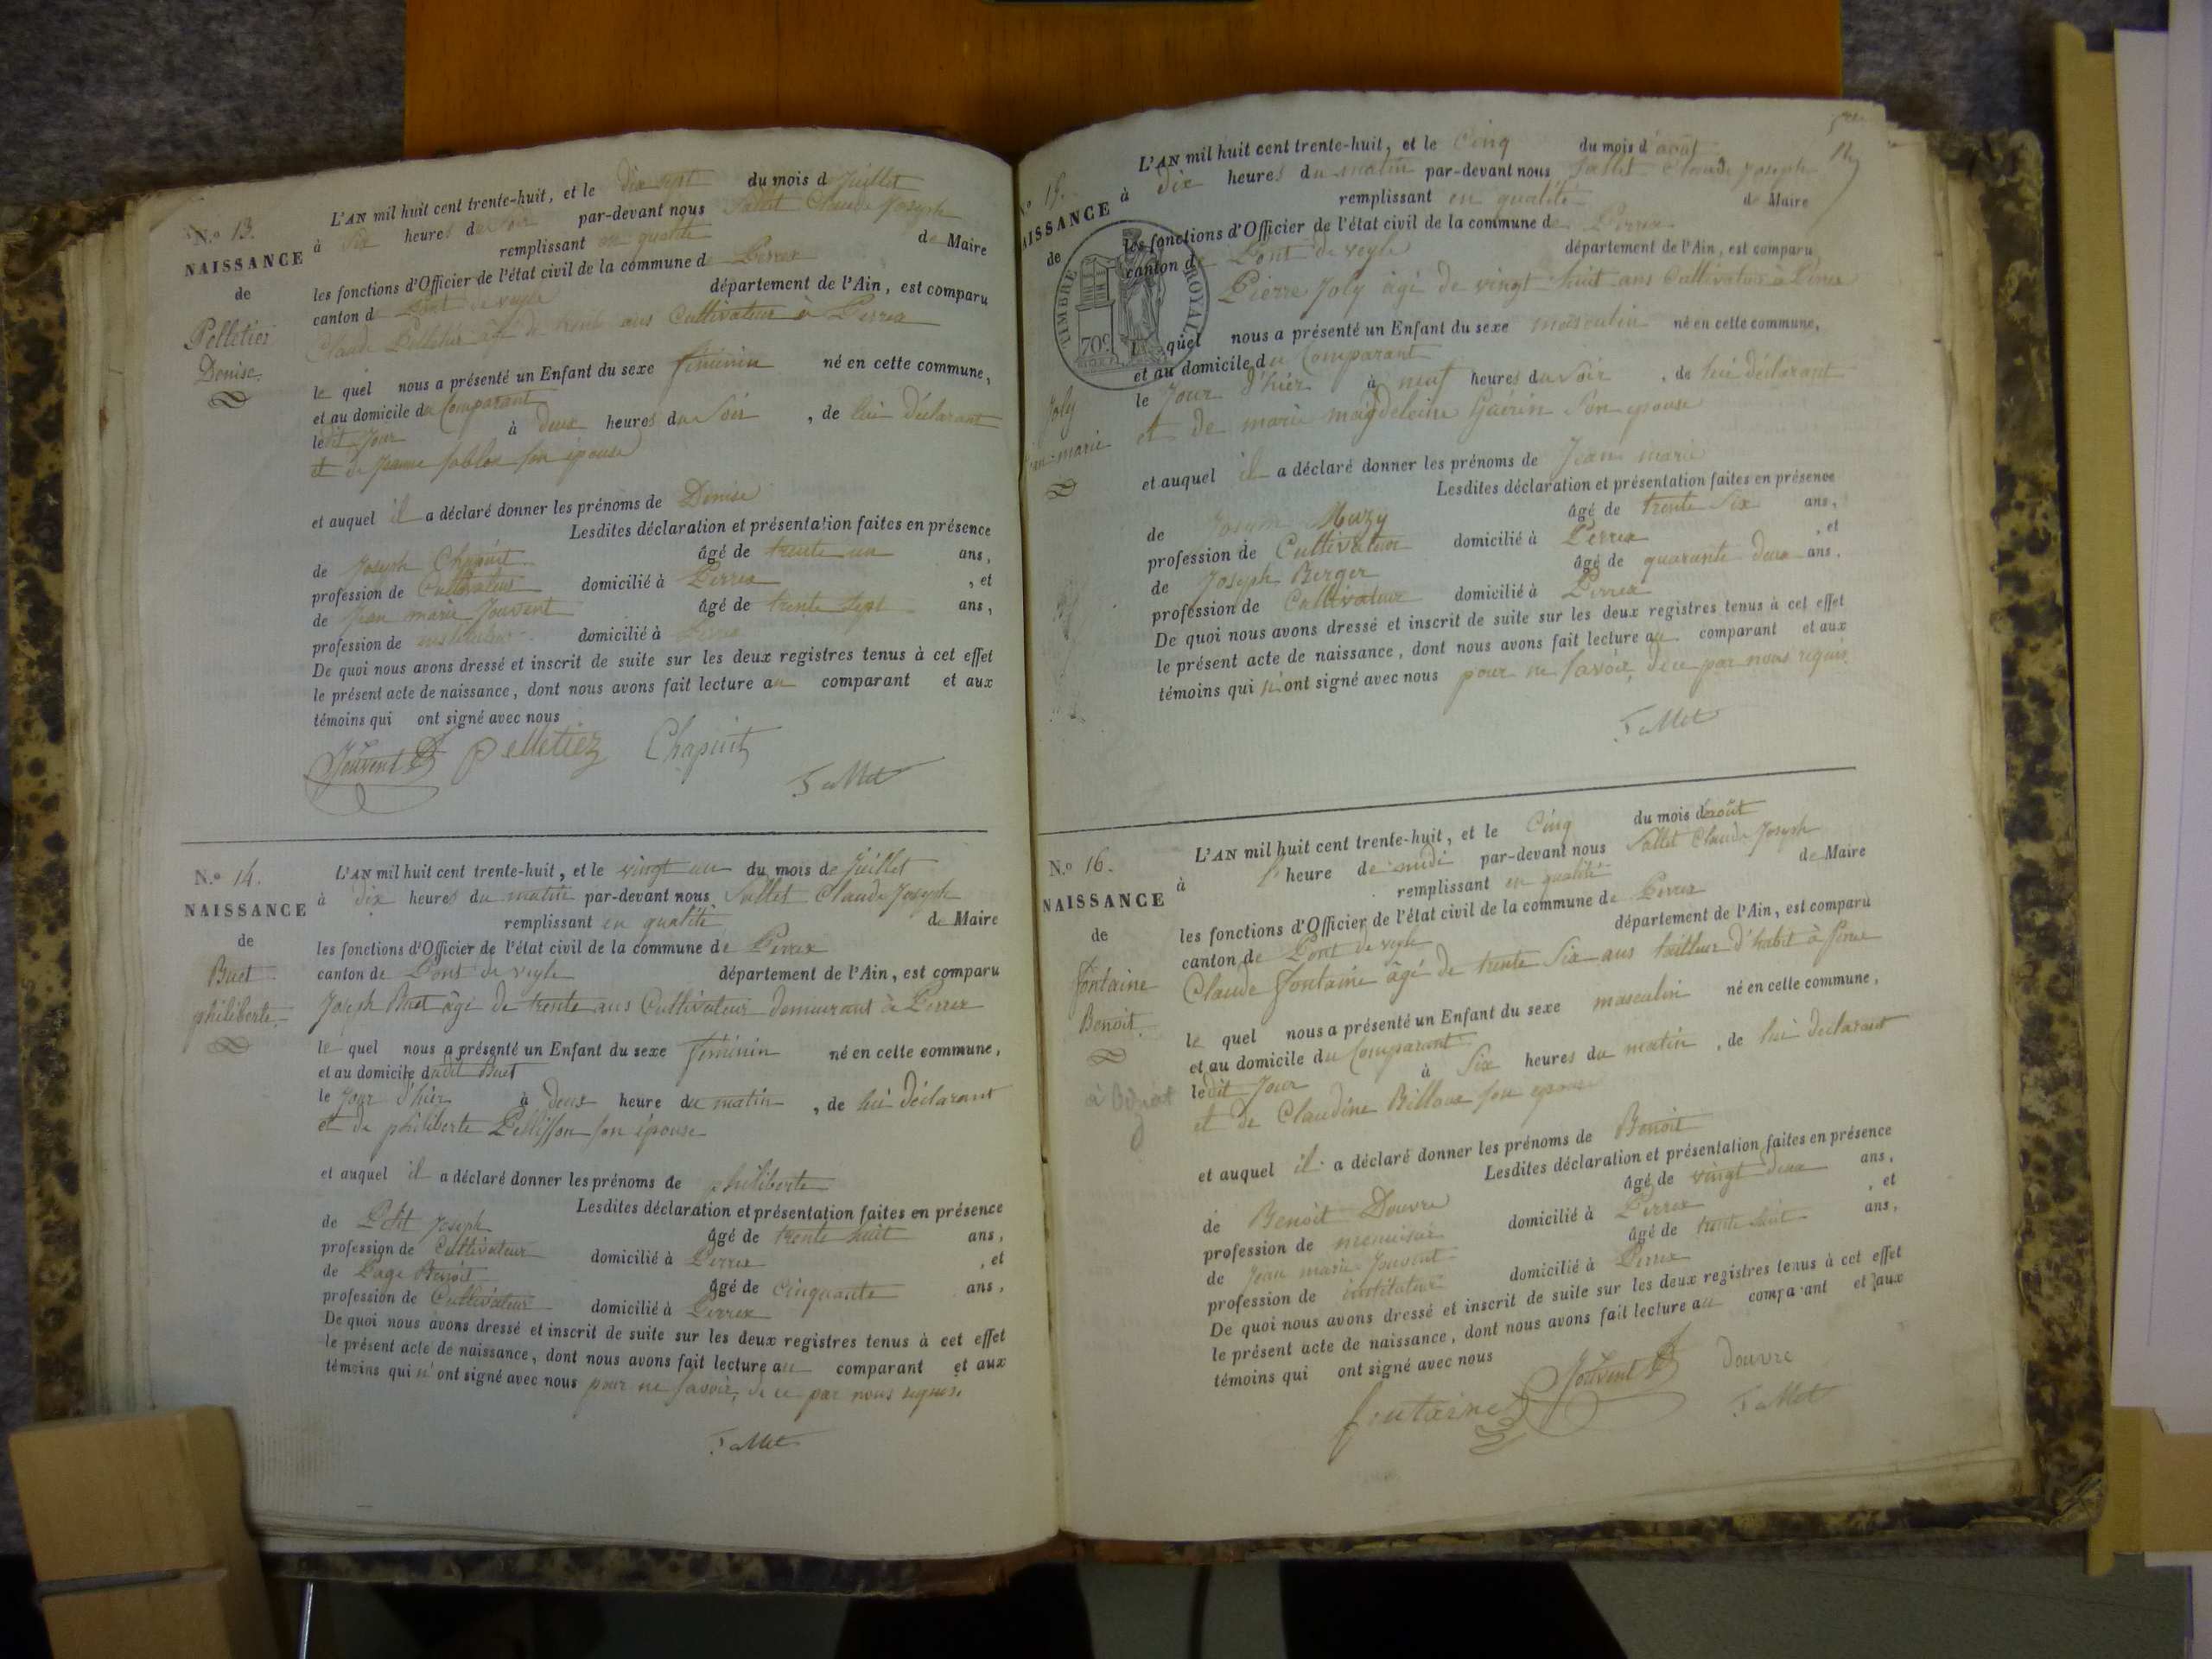 N.º 13.
NAISSANCE
de
Pelletier
Denise
L'AN mil huit cent trente-huit, et le dix sept du mois d Juillet
à Six heures du Soir par-devant nous Sallet Claude Joseph
remplissant en qualité de Maire
les fonctions d'Officier de l'état civil de la commune d Perrex
canton de Pont de veyle département de l'Ain, est comparu
Claude Pelletier âgé de ans Cultivateur à Perrex
le quel nous a présenté un Enfant du sexe féminin né en cette commune,
et au domicile du Comparant
ledit Jour à deux heures du Soir, de lui déclarant
et de son épouse
et auquel il a déclaré donner les prénoms de Denise
Lesdites déclaration et présentation faites en présence
de Joseph Chapuit âgé de trente un ans,
profession de Cultivateur domicilié à Perrex, et
de Jean marie Jouvent âgé de trente Sept ans,
profession de instituteur domicilié à Perrex
De quoi nous avons dressé et inscrit de suite sur les deux registres tenus à cet effet
le présent acte de naissance, dont nous avons fait lecture au comparant et aux
témoins qui ont signé avec nous
Jouvent pelletier Chapuit
Sallet
N.º 14.
NAISSANCE
de
Buet
philiberte
L'AN mil huit cent trente-huit, et le vingt un du mois de Juillet
à dix heures du matin par-devant nous Sallet Claude Joseph
remplissant en qualité de Maire
les fonctions d'Officier de l'état civil de la commune de Perrex
canton de Pont de veyle département de l'Ain, est comparu
Joseph Buet âgé de trente ans Cultivateur demeurant à Perrex
le quel nous a présenté un Enfant du sexe féminin né en cette commune,
et au domicile dudit Buet
le Jour d'hier à deux heure du matin, de lui déclarant
et de philiberte Pellisson son épouse
et auquel il a déclaré donner les prénoms de philiberte
Lesdites déclaration et présentation faites en présence
de Petit Joseph âgé de trente huit ans,
profession de Cultivateur domicilié à Perrex, et
de Page Benoit âgé de Cinquante ans,
profession de Cultivateur domicilié à Perrex
De quoi nous avons dressé et inscrit de suite sur les deux registres tenus à cet effet
le présent acte de naissance, dont nous avons fait lecture au comparant et aux
témoins qui n'ont signé avec nous pour ne savoir, de ce par nous requis.
Sallet
14
15.
AISSANCE
de
TIMBRE ROYAL
70c
Joly
marie
L'AN mil huit cent trente-huit, et le Cinq du mois d'août
à dix heures du matin par-devant nous Sallet Claude Joseph
remplissant en qualité de Maire
les fonctions d'Officier de l'état civil de la commune de Perrex
canton de Pont de veyle département de l'Ain, est comparu
Pierre Joly âgé de vingt huit ans Cultivateur à Perrex
le quel nous a présenté un Enfant du sexe masculin né en cette commune,
et au domicile du Comparant
le Jour d'hier à neuf heures du Soir, de lui déclarant
et de marie magdeleine Guérin son épouse
et auquel il a déclaré donner les prénoms de Jean marie
Lesdites déclaration et présentation faites en présence
de Muzy âgé de trente Six ans,
profession de Cultivateur domicilié à Perrex, et
de Joseph Berger âgé de quarante deux ans,
profession de Cultivateur domicilié à Perrex
De quoi nous avons dressé et inscrit de suite sur les deux registres tenus à cet effet
le présent acte de naissance, dont nous avons fait lecture au comparant et aux
témoins qui n'ont signé avec nous pour ne savoir, de ce par nous requis.
Sallet
N.º 16.
NAISSANCE
de
fontaine
Benoit
L'AN mil huit cent trente-huit, et le Cinq du mois d'août
à l'heure de midi par-devant nous Sallet Claude Joseph
remplissant en qualité de Maire
les fonctions d'Officier de l'état civil de la commune de Perrex
canton de Pont de veyle département de l'Ain, est comparu
Claude fontaine âgé de trente Six ans tailleur d'habit à Perrex
le quel nous a présenté un Enfant du sexe masculin né en cette commune,
et au domicile du Comparant
ledit Jour à Six heures du matin, de lui déclarant
et de Claudine Billoux son épouse
et auquel il a déclaré donner les prénoms de Benoit
Lesdites déclaration et présentation faites en présence
de Benoit Douvre âgé de vingt deux ans,
profession de menuisier domicilié à Perrex, et
de Jean marie Jouvent âgé de trente huit ans,
profession de instituteur domicilié à Perrex
De quoi nous avons dressé et inscrit de suite sur les deux registres tenus à cet effet
le présent acte de naissance, dont nous avons fait lecture au comparant et aux
témoins qui ont signé avec nous
Jouvent Douvre
fontaine Sallet